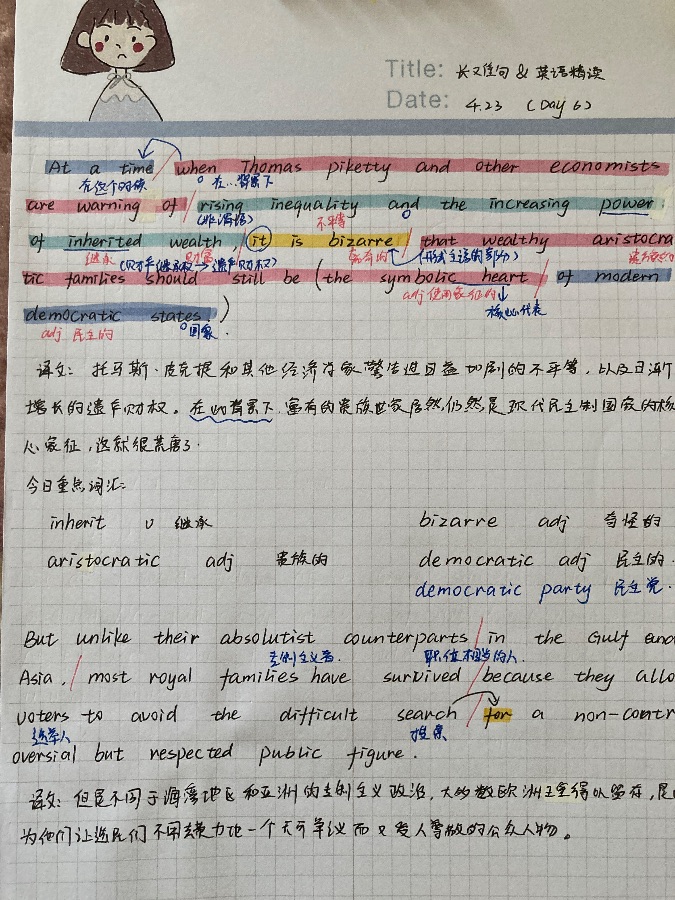 Title: 长难佳句 & 英语精读
Date: 4.23 (Day 6)
At a time / when Thomas piketty and other economists
在这个时候 在...背景下
are warning of / rising inequality and the increasing power
(非谓语) 不平等
of inherited wealth, it is bizarre / that wealthy aristocra
继承 财富 (财产继承权→遗产财权) 富有的 (形式主语的部分)
tic families should still be (the symbolic heart / of modern
adj 使用象征的 核心代表
democratic states)
adj 民主的 国家
译文: 托马斯·皮克提和其他经济学家警告过日益加剧的不平等, 以及日渐
增长的遗产财权。在此背景下, 富有的贵族世家居然仍然是现代民主制国家的核
心象征, 这就很荒唐了.
今日重点词汇:
inherit v 继承 bizarre adj 奇怪的
aristocratic adj 贵族的 democratic adj 民主的.
democratic party 民主党.
But unlike their absolutist counterparts / in the Gulf and
专制主义者. 职位相当的人.
Asia, / most royal families have survived / because they allo
voters to avoid the difficult search / for a non-contr
选举人 搜索
oversial but respected public figure.
译文: 但是不同于海湾地区和亚洲的专制主义政治, 大多数欧洲王室得以留存, 是
为他们让选民们不用费力地一个无可争议而又受人尊敬的公众人物。